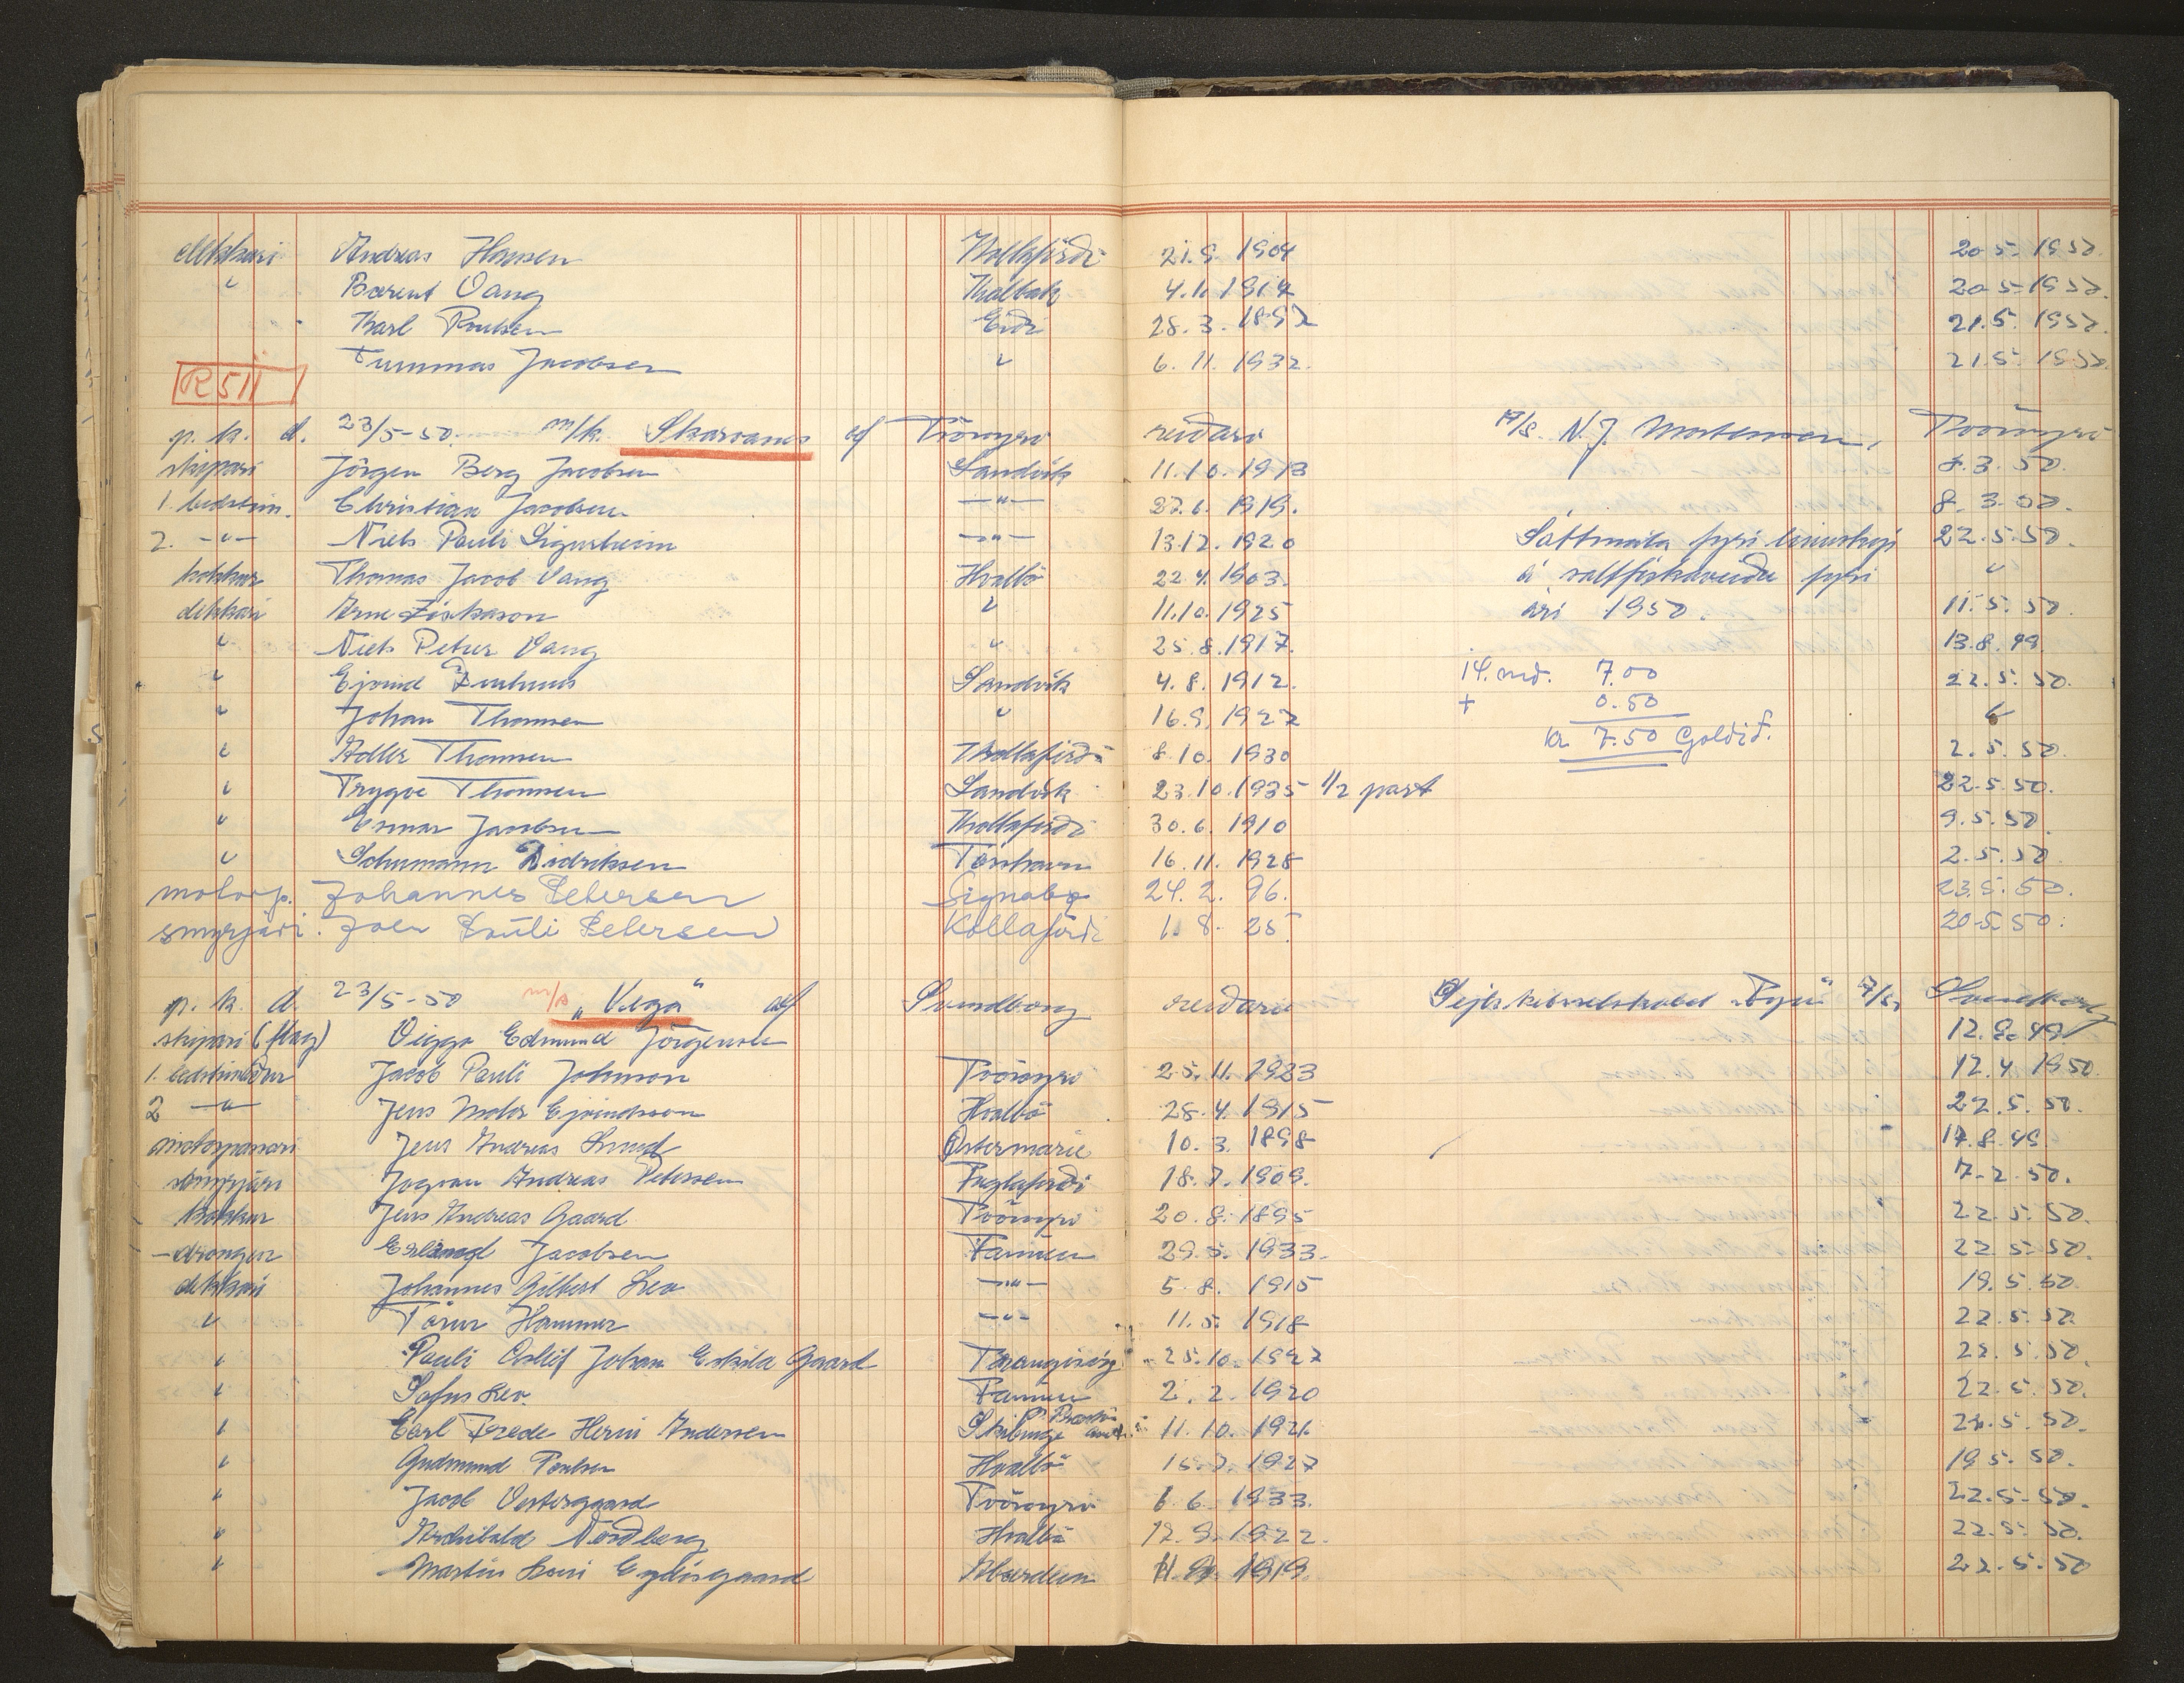 dekkari Andreas Hansen Kollafirði 21.9. 1904 20.5. 1950.
" Barent Vang Hvalbøh 4.1. 1914 20.5. 1950.
Karl Poulsen Eiði 28.3. 1897 21.5. 1950.
Tummas Jacobsen " 6.11. 1932. 21.5. 1950.
R 511
p. k. d. 23/5-50. m/k. Skarvanes af Tvöroyri reidari A/S. N. J. Mortensen, Tvöroyri
skipari Jörgen Berg Jacobsen Sandvík 11.10. 1913 8.3. 50.
1. bedstem. Christian Jacobsen —"— 27.6. 1919. 8.3.50.
2. —"— Niels Pauli Sigurheim —"— 13.12. 1920 Sáttmála fyri línuskip 22.5.50.
kokkur Thomas Jacob Vang Hvalbö 22.4.1903. á saltfiskaveiðu fyri "
dekkari Arne Ziskason " 11.10.1925 ári 1950. 11.5.50.
" Niels Petur Vang " 25.8.1917. 13.8.49.
" Ejvind Sandvík 4.8. 1912. 14. md. 7.00 22.5. 50.
" Johan Thomsen " 16.9. 1927 + 0.50 "
" Adler Thomsen Kollafirði 8.10. 1930 kr 7.50 Goldið. 2.5.50.
" Trygve Thomsen Sandvík 23.10.1935 1/2 part 22.5.50.
" Esmar Jacobsen Kollafirði 30.6. 1910 9.5.50.
" Schumann Didriksen Torshavn 16.11. 1928 2.5.50.
motorp. Johannes Petersen Signabø 24.2. 96. 23.5.50.
smyrjari. Joen Pauli Petersen Kollafirði 1.8. 25. 20.5.50.
p. k. d. 23/5-50 m/s „Vega" af Svendborg reidari Sejlskibsselskabet „Fyn" A/S, Svendborg
skipari (flag) Viggo Edmund Jörgensen 12.8.49
1. bedstimaður Jacob Pauli Johnson Tvöroyri 25.11. 1923 12.4 1950.
2 —"— Jens Molor Ejvindsson Hvalbö 28.4. 1915 22.5.50.
motorpassari Jens Andreas Lund Østermarie 10.3. 1898 17.8.49.
smyrjari Jógvan Andreas Petersen Fuglafirði 18.7. 1909. 7.2.50.
kokkur Jens Andreas Gaard Tvöroyri 20.8. 1895 22.5.50.
drongur Erlingd Jacobsen Famien 29.5. 1933. 22.5.50.
dekkari Johannes Gilbert Leo —"— 5.8. 1915 19.5.50.
" Tórur Hammer —"— 11.5. 1918 22.5.50.
" Pauli Osleif Johan Eskild Gaard Trangisvåg 25.10. 1927 22.5.50.
" Sofus Leo. Famien 2.2. 1920 22.5.50.
" Carl Frede Herni Andersen Skibinge Præstø amt. 11.10. 1926 22.5.50.
" Gudmund Poulsen Hvalbö 15.7. 1927 19.5.50.
" Jacob Vestergaard Tvöroyri 6.6. 1933. 22.5.50.
" Archibald Nordberg Hvalbö 12.9. 1922. 22.5.50.
" Martin Louis Eydisgaard Aberdeen 11. 1919. 22.5.50